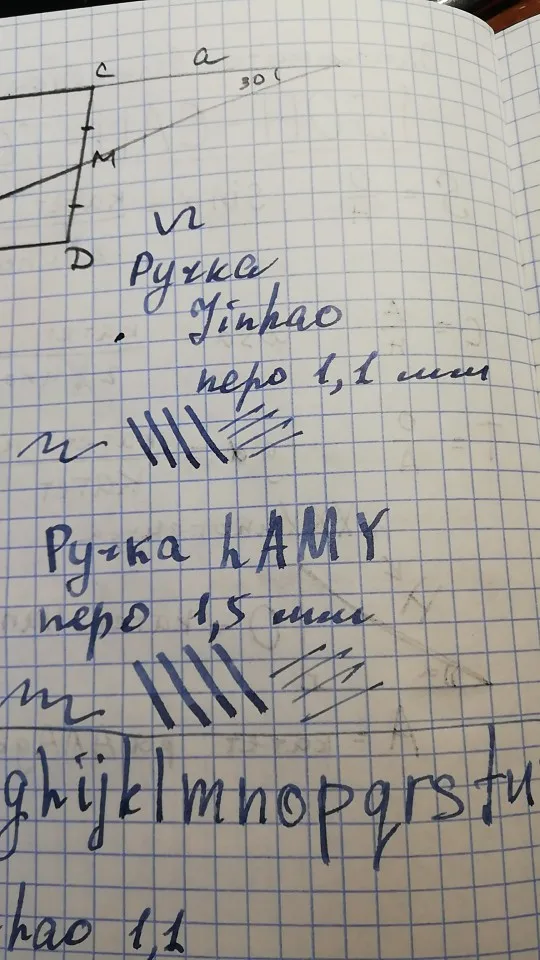 C a
30
M
D
Ручка
Jinhao
перо 1,1 мм
Ручка LAMY
перо 1,5 мм
ghijklmnopqrstu
hao 1,1